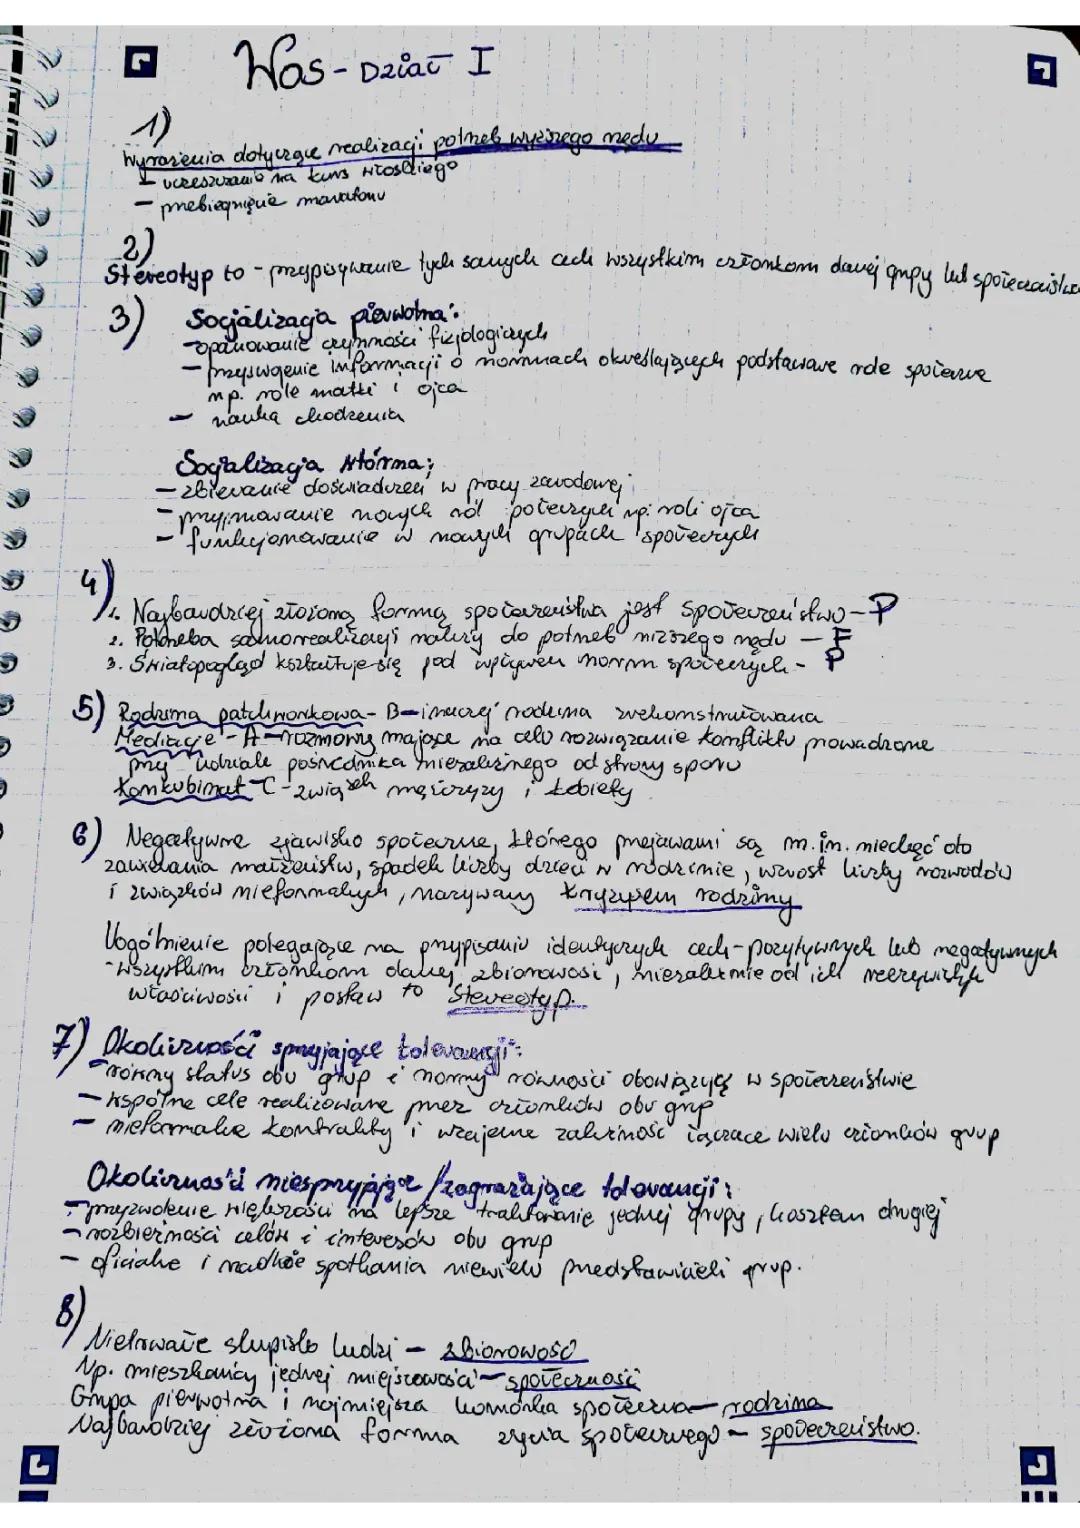 Wos - Dział I
1)
Wyrażenia dotyczące realizacji potrzeb wyższego rzędu
- uczęszczanie na kurs włoskiego
- przebiegnięcie maratonu
2)
Stereotyp to - przypisywanie tych samych cech wszystkim członkom danej grupy lub społeczeństwa
3) Socjalizacja pierwotna:
- opanowanie czynności fizjologicznych
- przyswojenie informacji o normach określających podstawowe role społeczne
np. role matki i ojca
- nauka chodzenia
Socjalizacja wtórna:
- zbieranie doświadczeń w pracy zawodowej
- przyjmowanie nowych ról połecznych np. roli ojca
- funkcjonowanie w nowych grupach społecznych
4)
1. Najbardziej złożoną formą społeczeństwa jest społeczeństwo - P
2. Potrzeba samorealizacji należy do potrzeb niższego rzędu - F
3. Światopogląd kształtuje się pod wpływem norm społecznych - P
5) Rodzina patchworkowa - B - inaczej rodzina zrekonstruowana
Mediacje - A - rozmowy mające na celu rozwiązanie konfliktu prowadzone
przy udziale pośrednika niezależnego od strony sporu
Konkubinat - C - związek mężczyzy i kobiety
6) Negatywne zjawisko społeczne, którego przejawami są m.in. niechęć do
zawierania małżeństw, spadek liczby dzieci w rodzinie, wzrost liczby rozwodów
i związków nieformalnych, nazywany kryzysem rodziny
Uogólnienie polegające na przypisaniu identycznych cech - pozytywnych lub negatywnych
- wszystkim członkom danej zbiorowości, niezależnie od ich rzeczywistych
właściwości i postaw to Stereotyp.
7) Okoliczności sprzyjające tolerancji:
- równy status obu grup i normy równości obowiązujące w społeczeństwie
- wspólne cele realizowane przez członków obu grup
- nieformalne kontakty i wzajemne zależność łączące wielu członków grup
Okoliczności niesprzyjające / zagrażające tolerancji:
- przyzwolenie większości na lepsze traktowanie jednej grupy, kosztem drugiej
- rozbieżności celów i interesów obu grup
- oficjalne i rzadkie spotkania niewielu przedstawicieli grup.
8)
Nietrwałe skupisko ludzi - zbiorowość
Np. mieszkańcy jednej miejscowości - społeczność
Grupa pierwotna i najmniejsza komórka społeczna - rodzina
Najbardziej złożona forma życia społecznego - społeczeństwo.